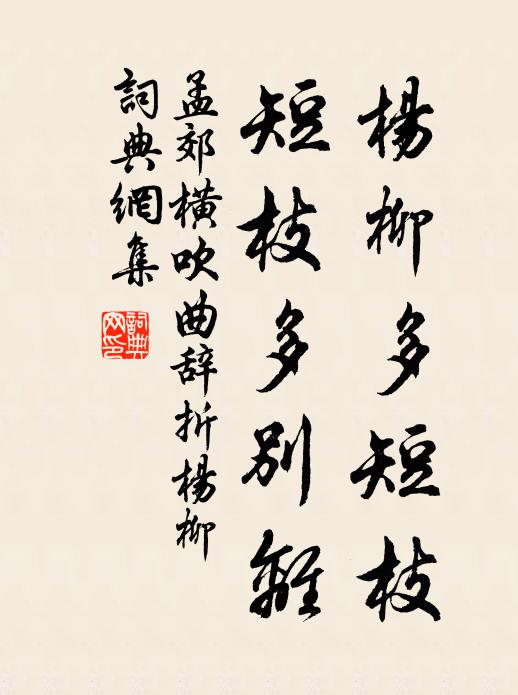 楊柳多短枝
短枝多別離
孟郊橫吹曲辞折楊柳
詞典網集
詞典网印